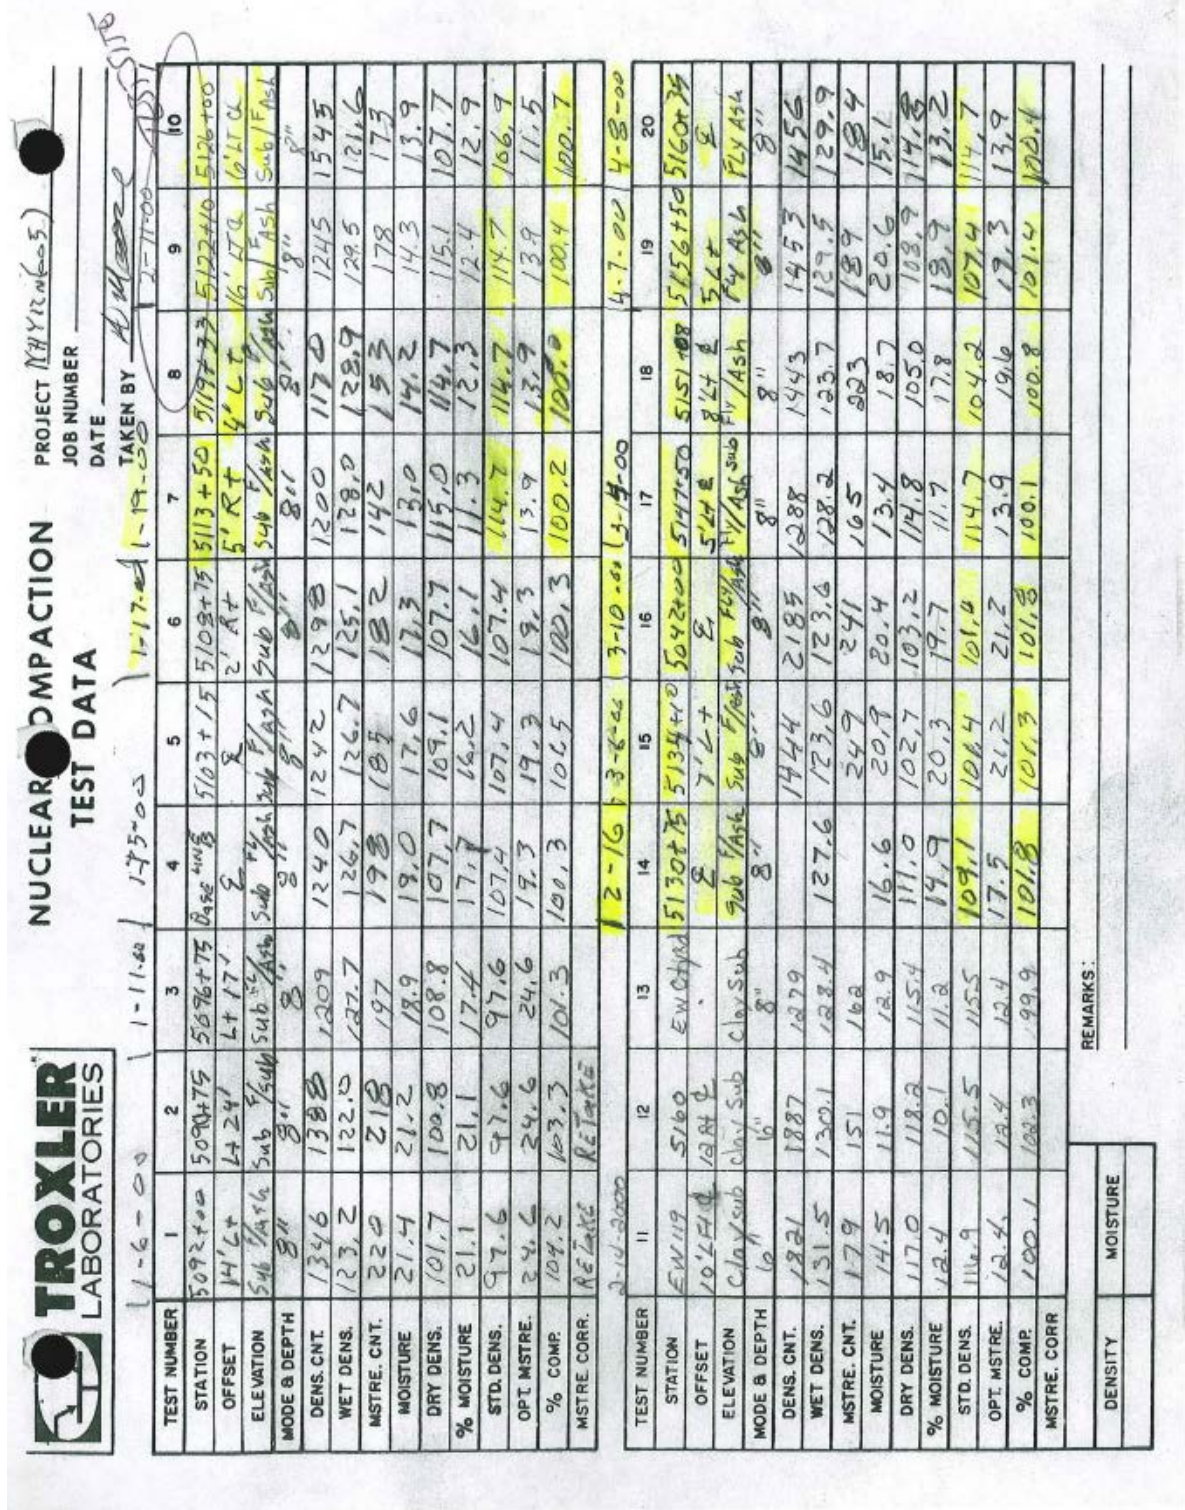 TROXLER
LABORATORIES
NUCLEAR COMPACTION
TEST DATA
PROJECT
JOB NUMBER
DATE
TAKEN BY
1-6-00 1-11-00 1-17-00 1-19-00 2-11-00
TEST NUMBER 1 2 3 4 5 6 7 8 9 10
STATION 5092+00 5090+75 5096+75 5103+15 5108+75 5113+50 5122+40 5126+00
OFFSET 14' Lt Lt 24' Lt 17' 2' Rt 5' Rt 4' Lt
ELEVATION Sub F/Ash Sub Sub Sub Sub Sub F/Ash Sub Sub F/Ash Sub/F Ash
MODE & DEPTH 8" 8" 8" 8" 8" 8" 8" 8" 8" 8"
DENS. CNT. 1346 1388 1209 1240 1242 1298 1200 1170 1245 1545
WET DENS. 123.2 122.0 127.7 126.7 126.7 125.1 128.0 128.9 129.5 121.6
MSTRE. CNT. 220 218 197 198 185 182 142 153 178 173
MOISTURE 21.4 21.2 18.9 19.0 17.6 17.3 13.0 14.2 14.3 13.9
DRY DENS. 101.7 100.8 108.8 107.7 109.1 107.7 115.0 114.7 115.1 107.7
% MOISTURE 21.1 21.1 17.4 17.7 16.2 16.1 11.3 12.3 12.4 12.9
STD. DENS. 97.6 97.6 97.6 107.4 107.4 107.4 114.7 114.7 114.7 106.9
OPT. MSTRE. 24.6 24.6 24.6 19.3 19.3 19.3 13.9 13.9 13.9
% COMP. 104.2 103.3 101.3 100.3 100.3 100.2 100.0 100.4 100.7
MSTRE. CORR. Retake Retake
2-14-2000 2-16 3-10-00 4-7-00 4-8-00
TEST NUMBER 11 12 13 14 15 16 17 18 19 20
STATION EW 119 5160 5130+75 5134+10 5042+00 5147+50 5151+08 5156+50
OFFSET 7' Lt 5' Lt 8' Lt 5 Lt
ELEVATION Clay/sub Clay Sub Clay Sub Sub F/Ash Sub F/Ash Sub Fly/Ash Fly/Ash Sub Fly/Ash Fly Ash Fly Ash
MODE & DEPTH 6" 6" 8" 8" 8" 8" 8" 8" 8" 8"
DENS. CNT. 1821 1887 1279 1444 2185 1288 1443 1453 1456
WET DENS. 131.5 130.1 128.4 127.6 123.6 123.6 128.2 123.7 129.5 129.9
MSTRE. CNT. 179 151 162 249 241 165 223 189 184
MOISTURE 14.5 11.9 12.9 16.6 20.9 20.4 13.4 18.7 20.6 15.1
DRY DENS. 117.0 118.2 115.4 111.0 102.7 103.2 114.8 105.0 108.9 114.8
% MOISTURE 12.4 10.1 11.2 14.9 20.3 19.7 11.7 17.8 18.9 13.2
STD. DENS. 116.9 115.5 115.5 109.1 101.4 101.4 114.7 104.2 107.4 114.7
OPT. MSTRE. 12.4 12.4 12.4 17.5 21.2 21.2 13.9 19.6 19.3 13.9
% COMP. 100.1 102.3 99.9 101.8 101.3 101.8 100.1 100.8 101.4 100.1
MSTRE. CORR
REMARKS:
DENSITY MOISTURE